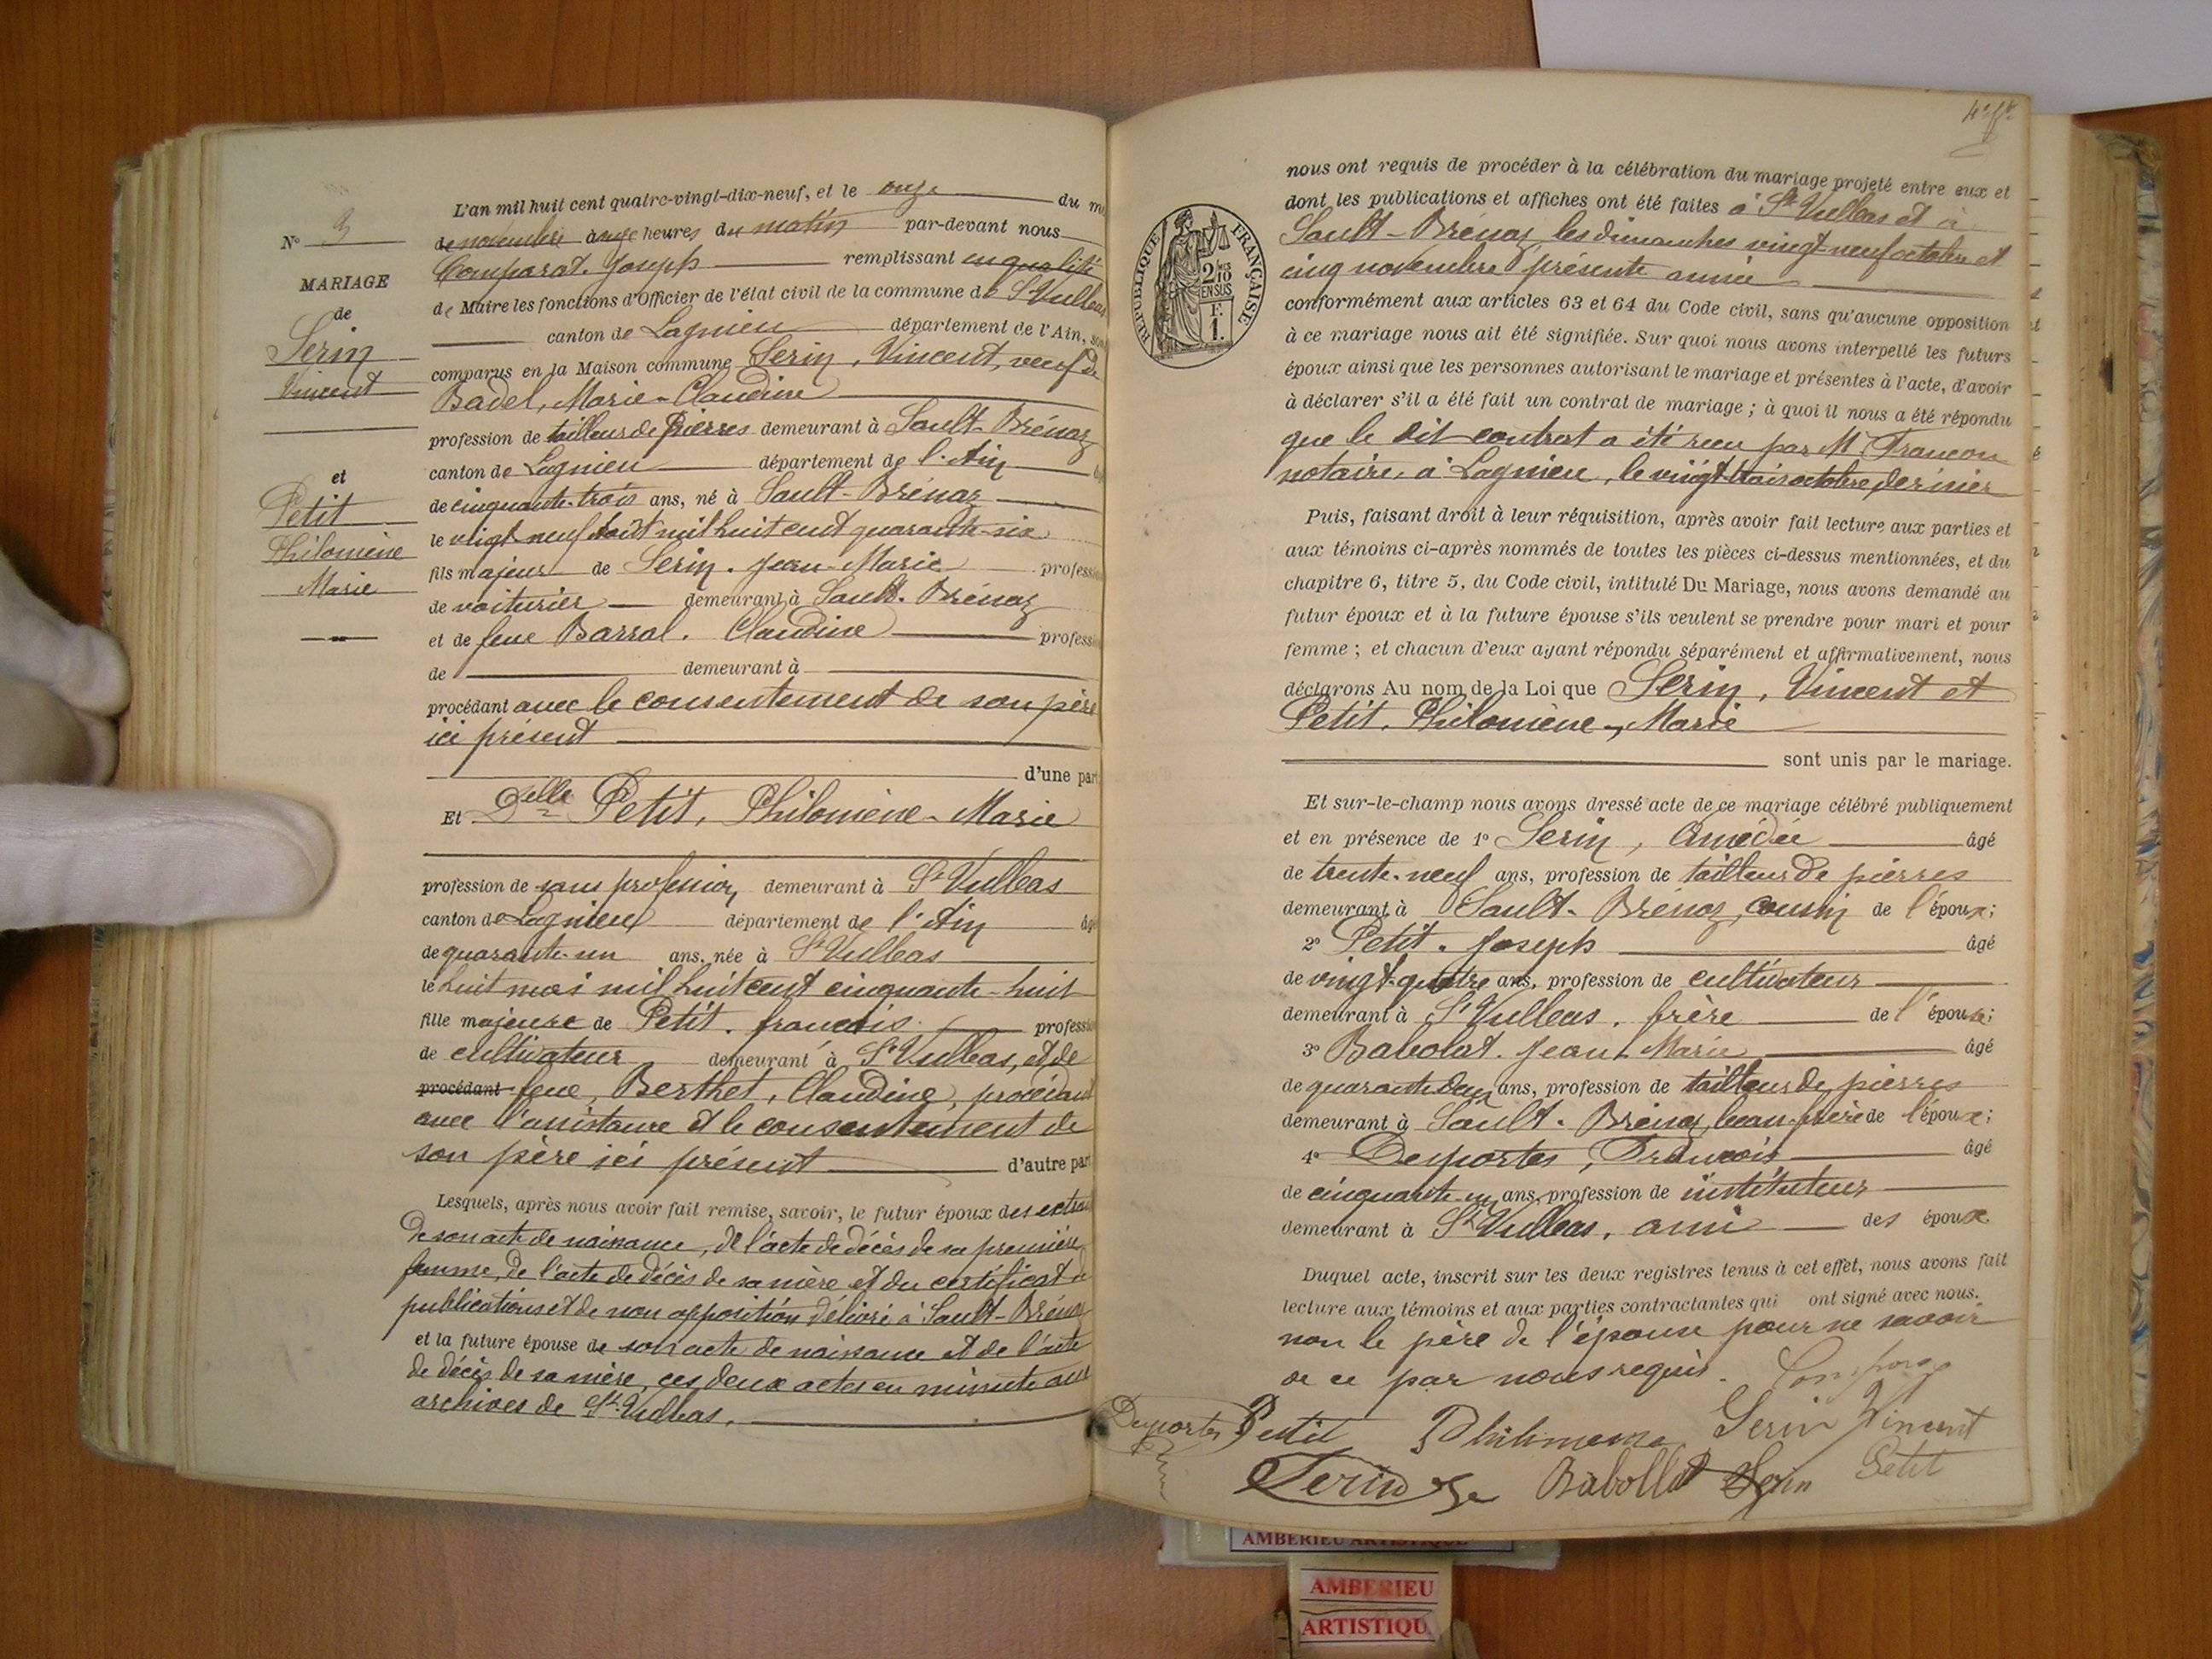 L'an mil huit cent quatre-vingt-dix-neuf, et le onze du
N° 9
de novembre à onze heures du matin par-devant nous
Comparat. Joseph remplissant en qualité
de Maire les fonctions d'Officier de l'état civil de la commune de St Vulbas
canton de Lagnieu département de l'Ain,
comparus en la Maison commune Serin, Vincent, veuf de
Badel, Marie-Claudine
profession de tailleur de pierres demeurant à Sault-Brénaz
canton de Lagnieu département de l'Ain
de cinquante-trois ans, né à Sault-Brénaz
le vingt neuf août mil huit cent quarante-six
fils majeur de Serin. Jean-Marie profession
de voiturier demeurant à Sault-Brénaz
et de feue Barral. Claudine profession
de demeurant à
procédant avec le consentement de son père
ici présent
d'une part
Et Delle Petit, Philomène-Marie
profession de sans profession, demeurant à St Vulbas
canton de Lagnieu département de l'Ain âgé
de quarante-un ans, née à St Vulbas
le huit mai mil huit cent cinquante-huit
fille majeure de Petit. francois. profession
de cultivateur demeurant à St Vulbas, et de
procédant feue, Berthet, Claudine, procédant
avec l'assistance et le consentement de
son père ici présent d'autre part
Lesquels, après nous avoir fait remise, savoir, le futur époux des extraits
de son acte de naissance, de l'acte de décès de sa première
femme, de l'acte de décès de sa mère et du certificat de
publications et de non opposition délivré à Sault-Brénaz
et la future épouse de son acte de naissance et de l'acte
de décès de sa mère, ces deux actes en minute aux
archives de St-Vulbas.
MARIAGE
de
Serin
Vincent
et
Petit
Philomène
Marie
nous ont requis de procéder à la célébration du mariage projeté entre eux et
dont les publications et affiches ont été faites à St Vulbas et à
Sault-Brénaz les dimanches vingt-neuf octobre et
cinq novembre présente année
conformément aux articles 63 et 64 du Code civil, sans qu'aucune opposition
à ce mariage nous ait été signifiée. Sur quoi nous avons interpellé les futurs
époux ainsi que les personnes autorisant le mariage et présentes à l'acte, d'avoir
à déclarer s'il a été fait un contrat de mariage ; à quoi il nous a été répondu
que le dit contrat a été reçu par Me Francon
notaire, à Lagnieu, le vingt-trois octobre dernier
Puis, faisant droit à leur réquisition, après avoir fait lecture aux parties et
aux témoins ci-après nommés de toutes les pièces ci-dessus mentionnées, et du
chapitre 6, titre 5, du Code civil, intitulé Du Mariage, nous avons demandé au
futur époux et à la future épouse s'ils veulent se prendre pour mari et pour
femme ; et chacun d'eux ayant répondu séparément et affirmativement, nous
déclarons Au nom de la Loi que Serin, Vincent et
Petit. Philomène-Marie
sont unis par le mariage.
Et sur-le-champ nous avons dressé acte de ce mariage célébré publiquement
et en présence de 1° Serin, Amédée âgé
de trente-neuf ans, profession de tailleur de pierres
demeurant à Sault-Brénaz, cousin de l'époux;
2° Petit. Joseph âgé
de vingt-quatre ans, profession de cultivateur
demeurant à St Vulbas. frère de l'épouse;
3° Bavolat. Jean-Marie âgé
de quarante deux ans, profession de tailleur de pierres
demeurant à Sault-Brénaz, beau-frère de l'époux;
4° Desportes, François âgé
de cinquante-un ans, profession de instituteur
demeurant à St Vulbas, ami des époux.
Duquel acte, inscrit sur les deux registres tenus à cet effet, nous avons fait
lecture aux témoins et aux parties contractantes qui ont signé avec nous.
non le père de l'épouse pour ne savoir
de ce par nous requis. Comparat
Desportes Petit Philomène Serin Vincent
Serin Babollat Serin Petit
RÉPUBLIQUE FRANÇAISE
2/10
EN SUS
F.
1.
AMBERIEU ARTISTIQUE
AMBERIEU
ARTISTIQU